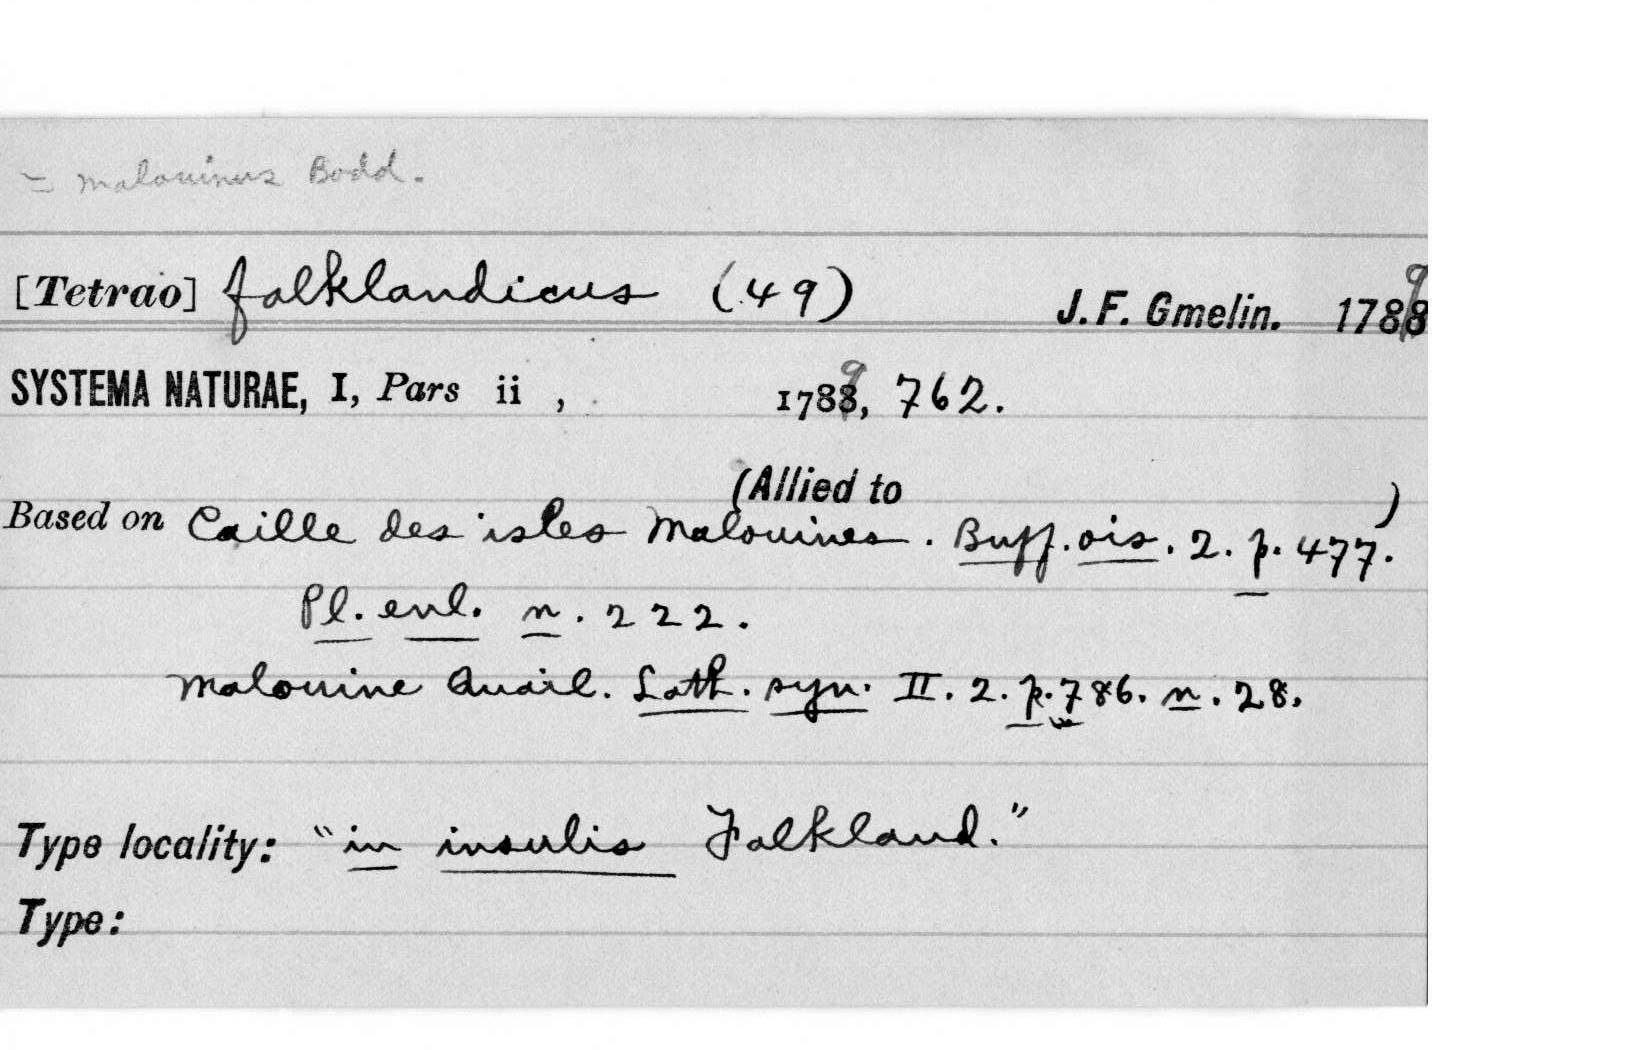 = malouinus Bodd.
[Tetrao] falklandicus (49) J. F. Gmelin. 1789
SYSTEMA NATURAE, I, Pars ii , 1789, 762.
(Allied to )
Based on Caille des isles Malouines. Buff. ois. 2. p. 477.
Pl. enl. n. 222.
Malouine Quail. Lath. syn. II. 2. p. 786. n. 28.
Type locality: "in insulis Falkland."
Type: